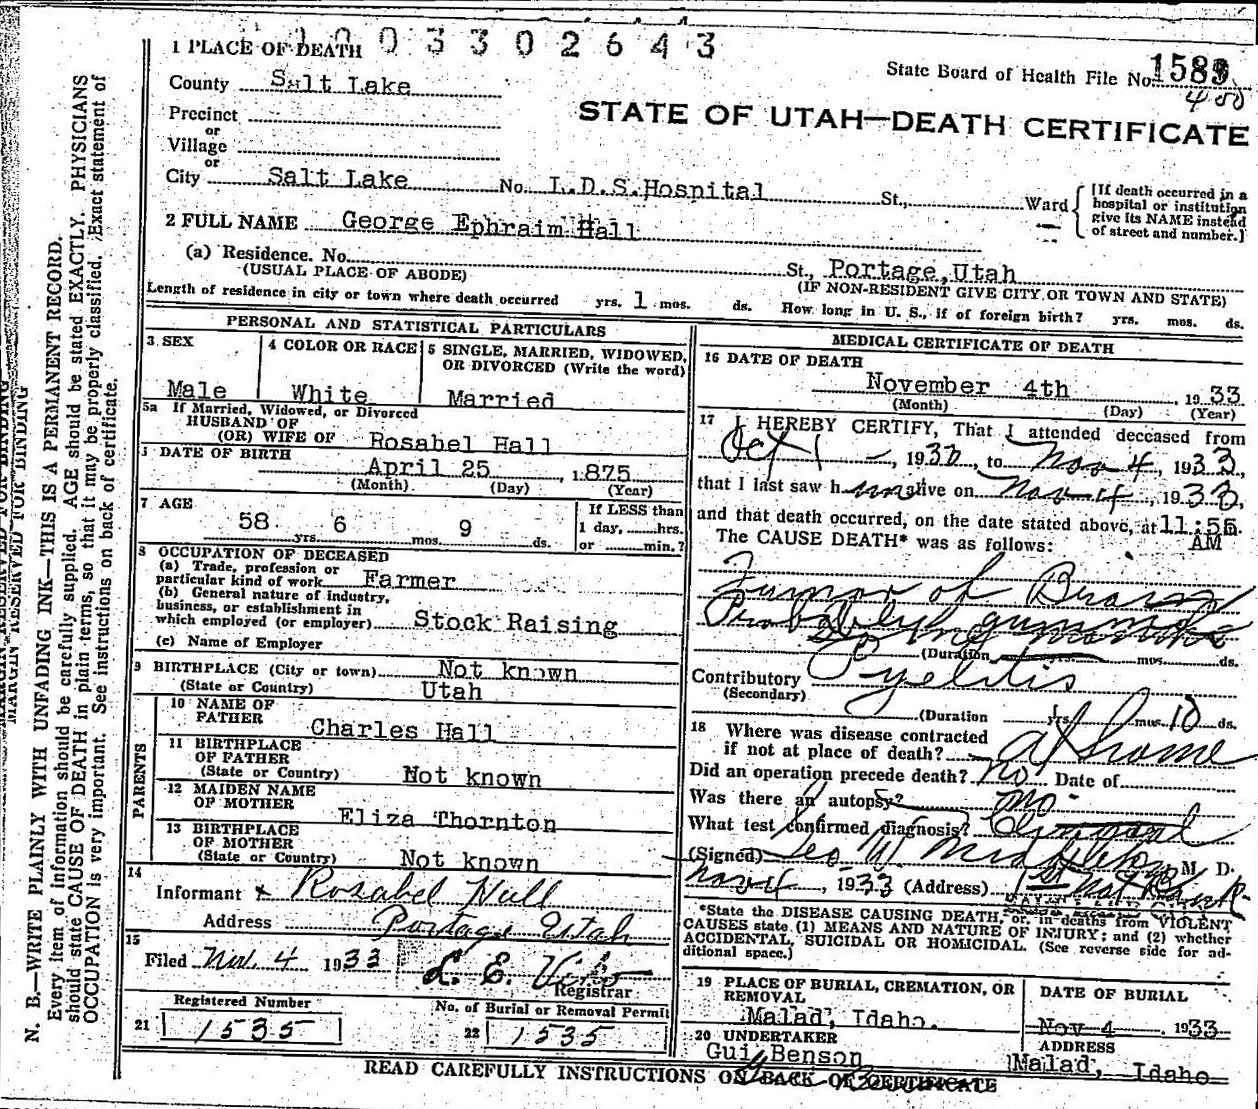 1003302643
1 PLACE OF DEATH
State Board of Health File No. 1583
400
County Salt Lake
STATE OF UTAH—DEATH CERTIFICATE
Precinct
or
Village
or
City Salt Lake No. L.D.S. Hospital St., Ward
[If death occurred in a hospital or institution give its NAME instead of street and number.]
2 FULL NAME George Ephraim Hall
(a) Residence. No. St., Portage, Utah
(USUAL PLACE OF ABODE) (IF NON-RESIDENT GIVE CITY OR TOWN AND STATE)
Length of residence in city or town where death occurred yrs. 1 mos. ds. How long in U. S., if of foreign birth? yrs. mos. ds.
PERSONAL AND STATISTICAL PARTICULARS
3 SEX
Male
4 COLOR OR RACE
White
5 SINGLE, MARRIED, WIDOWED, OR DIVORCED (Write the word)
Married
5a If Married, Widowed, or Divorced
HUSBAND OF
(OR) WIFE OF Rosabel Hall
DATE OF BIRTH
April 25, 1875
(Month) (Day) (Year)
7 AGE
58 yrs. 6 mos. 9 ds.
If LESS than
1 day, hrs.
or min.?
8 OCCUPATION OF DECEASED
(a) Trade, profession or
particular kind of work Farmer
(b) General nature of industry,
business, or establishment in
which employed (or employer) Stock Raising
(c) Name of Employer
9 BIRTHPLACE (City or town) Not known
(State or Country) Utah
PARENTS
10 NAME OF
FATHER
Charles Hall
11 BIRTHPLACE
OF FATHER
(State or Country) Not known
12 MAIDEN NAME
OF MOTHER
Eliza Thornton
13 BIRTHPLACE
OF MOTHER
(State or Country) Not known
14
Informant x Rosabel Hall
Address Portage Utah
15
Filed Nov. 4 1933 L. E.
Registrar
Registered Number
21 1535
No. of Burial or Removal Permit
22 1535
MEDICAL CERTIFICATE OF DEATH
16 DATE OF DEATH
November 4th, 1933
(Month) (Day) (Year)
17 I HEREBY CERTIFY, That I attended deceased from
Oct 1, 1933, to Nov 4, 1933,
that I last saw him alive on Nov 4, 1933,
and that death occurred, on the date stated above, at 11:55
AM
The CAUSE DEATH* was as follows:
Tumor of Brain
Probably gummata
(Duration yrs. mos. ds.
Contributory Pyelitis
(Secondary)
(Duration yrs. mos. 10 ds.
18 Where was disease contracted
if not at place of death? at home
Did an operation precede death? no Date of
Was there an autopsy? no
What test confirmed diagnosis? Clinical
(Signed) Geo W Middleton M. D.
Nov 4, 1933 (Address) 1st Nat Bank
*State the DISEASE CAUSING DEATH, or, in deaths from VIOLENT
CAUSES state (1) MEANS AND NATURE OF INJURY; and (2) whether
ACCIDENTAL, SUICIDAL OR HOMICIDAL. (See reverse side for ad-
ditional space.)
19 PLACE OF BURIAL, CREMATION, OR
REMOVAL
Malad, Idaho.
DATE OF BURIAL
Nov 4, 1933
20 UNDERTAKER
Gui Benson
ADDRESS
Malad, Idaho
READ CAREFULLY INSTRUCTIONS ON BACK OF CERTIFICATE
MARGIN RESERVED FOR BINDING
N. B.—WRITE PLAINLY WITH UNFADING INK—THIS IS A PERMANENT RECORD.
Every item of information should be carefully supplied. AGE should be stated EXACTLY. PHYSICIANS
should state CAUSE OF DEATH in plain terms, so that it may be properly classified. Exact statement of
OCCUPATION is very important. See instructions on back of certificate.